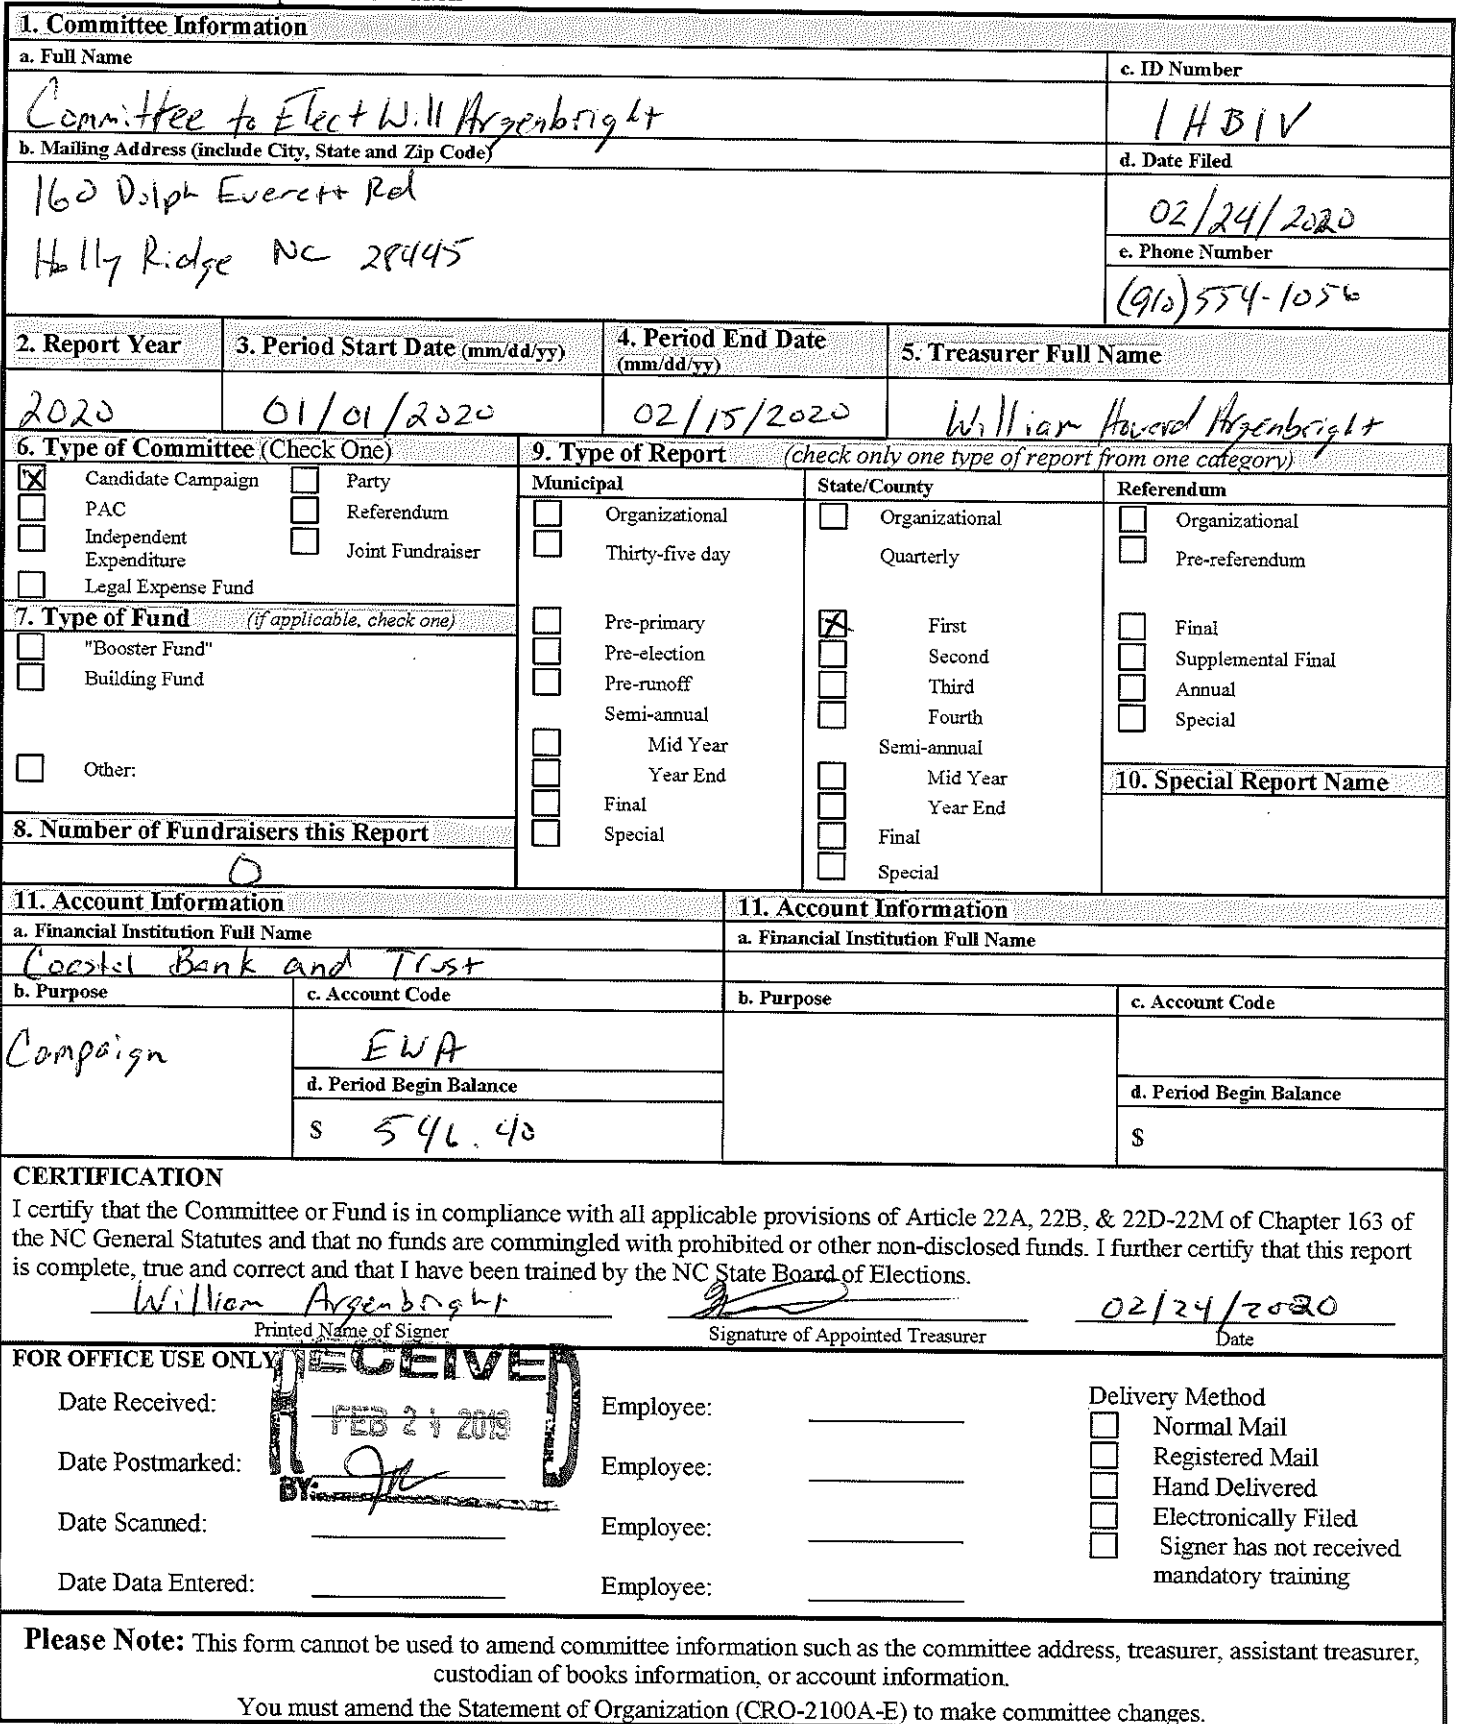 1. Committee Information
a. Full Name
c. ID Number
Committee to Elect Will Argenbright
1HB1V
b. Mailing Address (include City, State and Zip Code)
d. Date Filed
160 Dolph Everett Rd
02/24/2020
Holly Ridge NC 28445
e. Phone Number
(910) 554-1056
2. Report Year
3. Period Start Date (mm/dd/yy)
4. Period End Date (mm/dd/yy)
5. Treasurer Full Name
2020
01/01/2020
02/15/2020
William Howard Argenbright
6. Type of Committee (Check One)
Candidate Campaign
Party
PAC
Referendum
Independent Expenditure
Joint Fundraiser
Legal Expense Fund
7. Type of Fund (if applicable, check one)
"Booster Fund"
Building Fund
Other:
8. Number of Fundraisers this Report
0
9. Type of Report (check only one type of report from one category)
Municipal
Organizational
Thirty-five day
Pre-primary
Pre-election
Pre-runoff
Semi-annual
Mid Year
Year End
Final
Special
State/County
Organizational
Quarterly
First
Second
Third
Fourth
Semi-annual
Mid Year
Year End
Final
Special
Referendum
Organizational
Pre-referendum
Final
Supplemental Final
Annual
Special
10. Special Report Name
11. Account Information
a. Financial Institution Full Name
Coastal Bank and Trust
b. Purpose
c. Account Code
Campaign
EWA
d. Period Begin Balance
$ 546.40
11. Account Information
a. Financial Institution Full Name
b. Purpose
c. Account Code
d. Period Begin Balance
$
CERTIFICATION
I certify that the Committee or Fund is in compliance with all applicable provisions of Article 22A, 22B, & 22D-22M of Chapter 163 of
the NC General Statutes and that no funds are commingled with prohibited or other non-disclosed funds. I further certify that this report
is complete, true and correct and that I have been trained by the NC State Board of Elections.
William Argenbright
02/24/2020
Printed Name of Signer
Signature of Appointed Treasurer
Date
FOR OFFICE USE ONLY
RECEIVED
Date Received:
FEB 2 2019
Employee:
Date Postmarked:
Employee:
BY:
Date Scanned:
Employee:
Date Data Entered:
Employee:
Delivery Method
Normal Mail
Registered Mail
Hand Delivered
Electronically Filed
Signer has not received
mandatory training
Please Note: This form cannot be used to amend committee information such as the committee address, treasurer, assistant treasurer,
custodian of books information, or account information.
You must amend the Statement of Organization (CRO-2100A-E) to make committee changes.